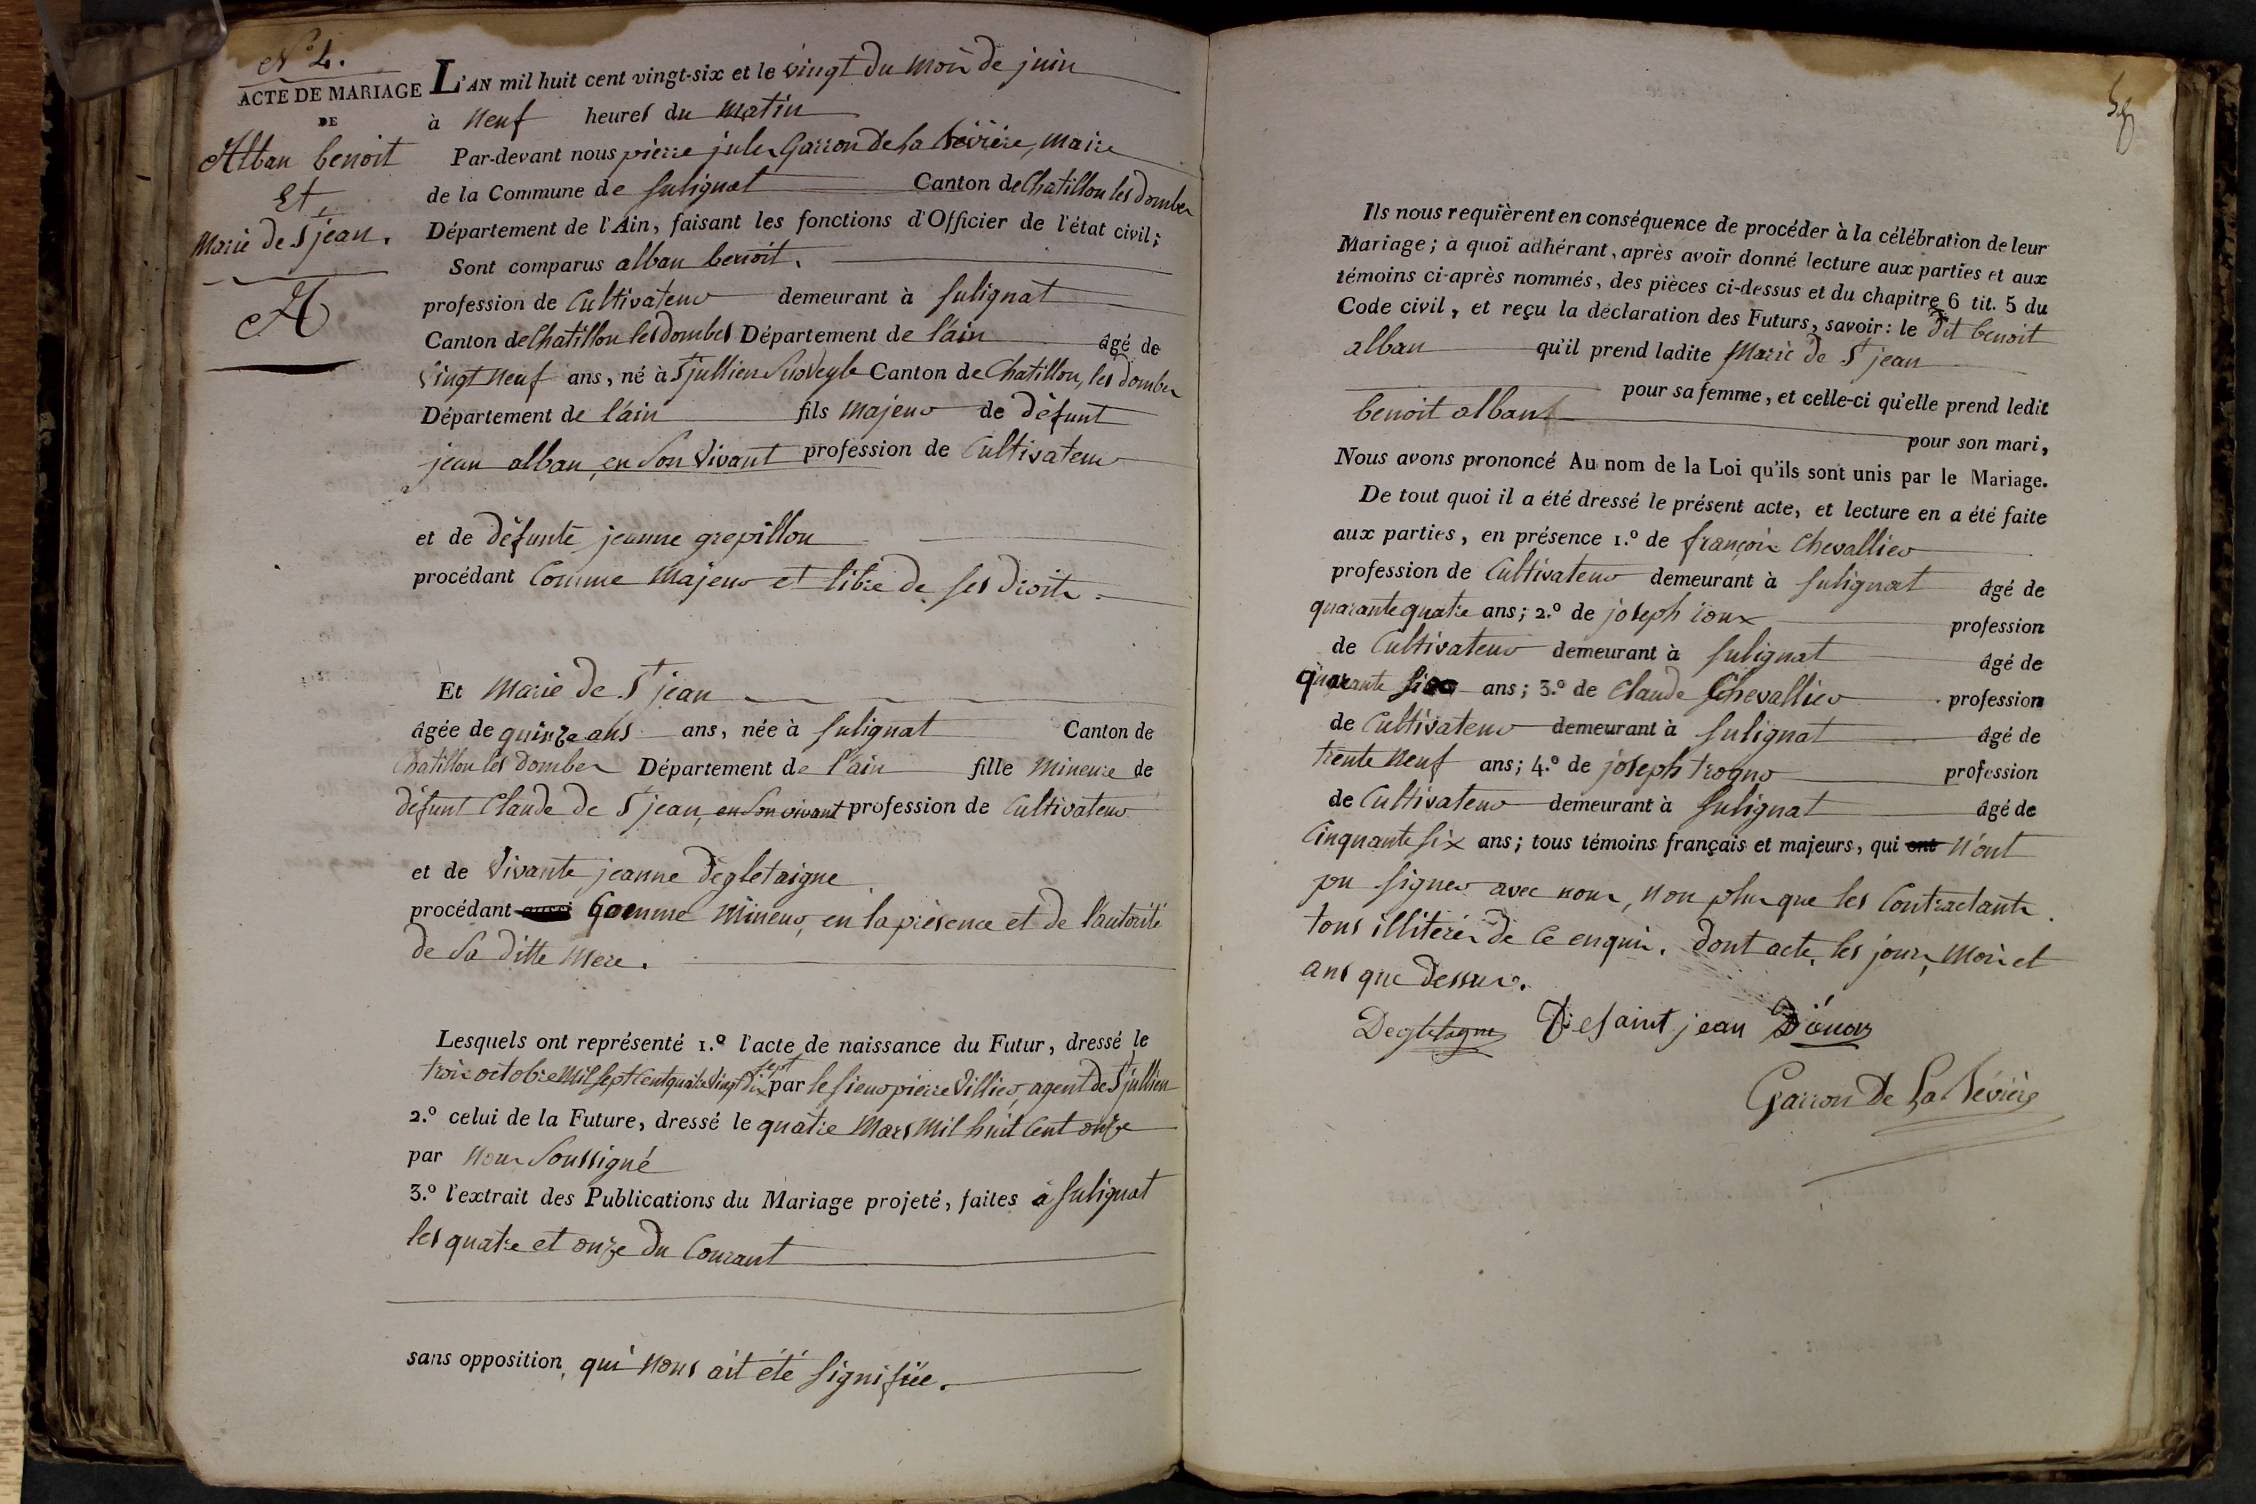 N.o 4.
ACTE DE MARIAGE
DE
Alban benoit
Et
Marie de St jean.
A
L'AN mil huit cent vingt-six et le vingt du mois de juin
à neuf heures du matin
Par-devant nous pierre jules Garron de la Bévière, maire
de la Commune de sulignat Canton de Chatillon les dombes
Département de l'Ain, faisant les fonctions d'Officier de l'état civil;
Sont comparus alban benoit.
profession de Cultivateur demeurant à sulignat
Canton de Chatillon les dombes Département de l'ain âgé de
vingt neuf ans, né à St jullien Sur Veyle Canton de Chatillon, les dombes
Département de l'ain fils majeur de défunt
jean alban, en son vivant profession de Cultivateur
et de défunte jeanne grepillon
procédant comme majeur et libre de ses droits.
Et Marie de St jean
âgée de quinze ans ans, née à sulignat Canton de
Chatillon les dombes Département de l'ain fille mineure de
défunt Claude de St jean, en son vivant profession de Cultivateur
et de vivante jeanne degletaigne
procédant aussi Comme mineur, en la présence et de l'autorité
de sa ditte mere.
Lesquels ont représenté 1.º l'acte de naissance du Futur, dressé le
sept
trois octobre mil sept cent quatre vingt dix par le sieur pierre Villier, agent de St jullien
2.º celui de la Future, dressé le quatre mars mil huit cent onze
par nous soussigné
3.º l'extrait des Publications du Mariage projeté, faites à sulignat
les quatre et onze du Courant
sans opposition, qui nous ait été signifiée.
Ils nous requièrent en conséquence de procéder à la célébration de leur
Mariage; à quoi adhérant, après avoir donné lecture aux parties et aux
témoins ci-après nommés, des pièces ci-dessus et du chapitre 6 tit. 5 du
Code civil, et reçu la déclaration des Futurs, savoir: le dit benoit
alban qu'il prend ladite Marie de St jean
pour sa femme, et celle-ci qu'elle prend ledit
benoit alban
pour son mari,
Nous avons prononcé Au nom de la Loi qu'ils sont unis par le Mariage.
De tout quoi il a été dressé le présent acte, et lecture en a été faite
aux parties, en présence 1.º de françois Chevallier
profession de Cultivateur demeurant à sulignat âgé de
quarante quatre ans; 2.º de joseph roux profession
de Cultivateur demeurant à sulignat âgé de
quarante six ans; 3.º de Claude Chevallier profession
de Cultivateur demeurant à sulignat âgé de
trente neuf ans; 4.º de joseph profession
de Cultivateur demeurant à sulignat âgé de
Cinquante six ans; tous témoins français et majeurs, qui ont n'ont
pu signer avec nous, non plus que les Contractants
tous illitérés de ce enquis. dont acte, les jour, mois et
ans que dessus.
Degletagne Desaint jean
Garron De La Bévière